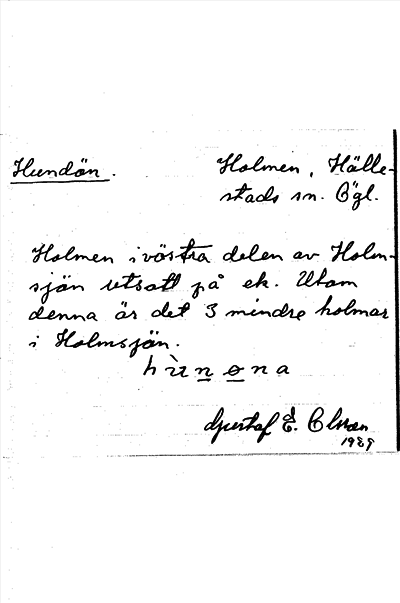 Hundön.
Holmen, Hälle-
stads sn. Ögl.
Holmen i västra delen av Holm-
sjön utsatt på ek. Utom
denna är det 3 mindre holmar
i Holmsjön.
hùnøna
Gustaf E. Olsson
1929